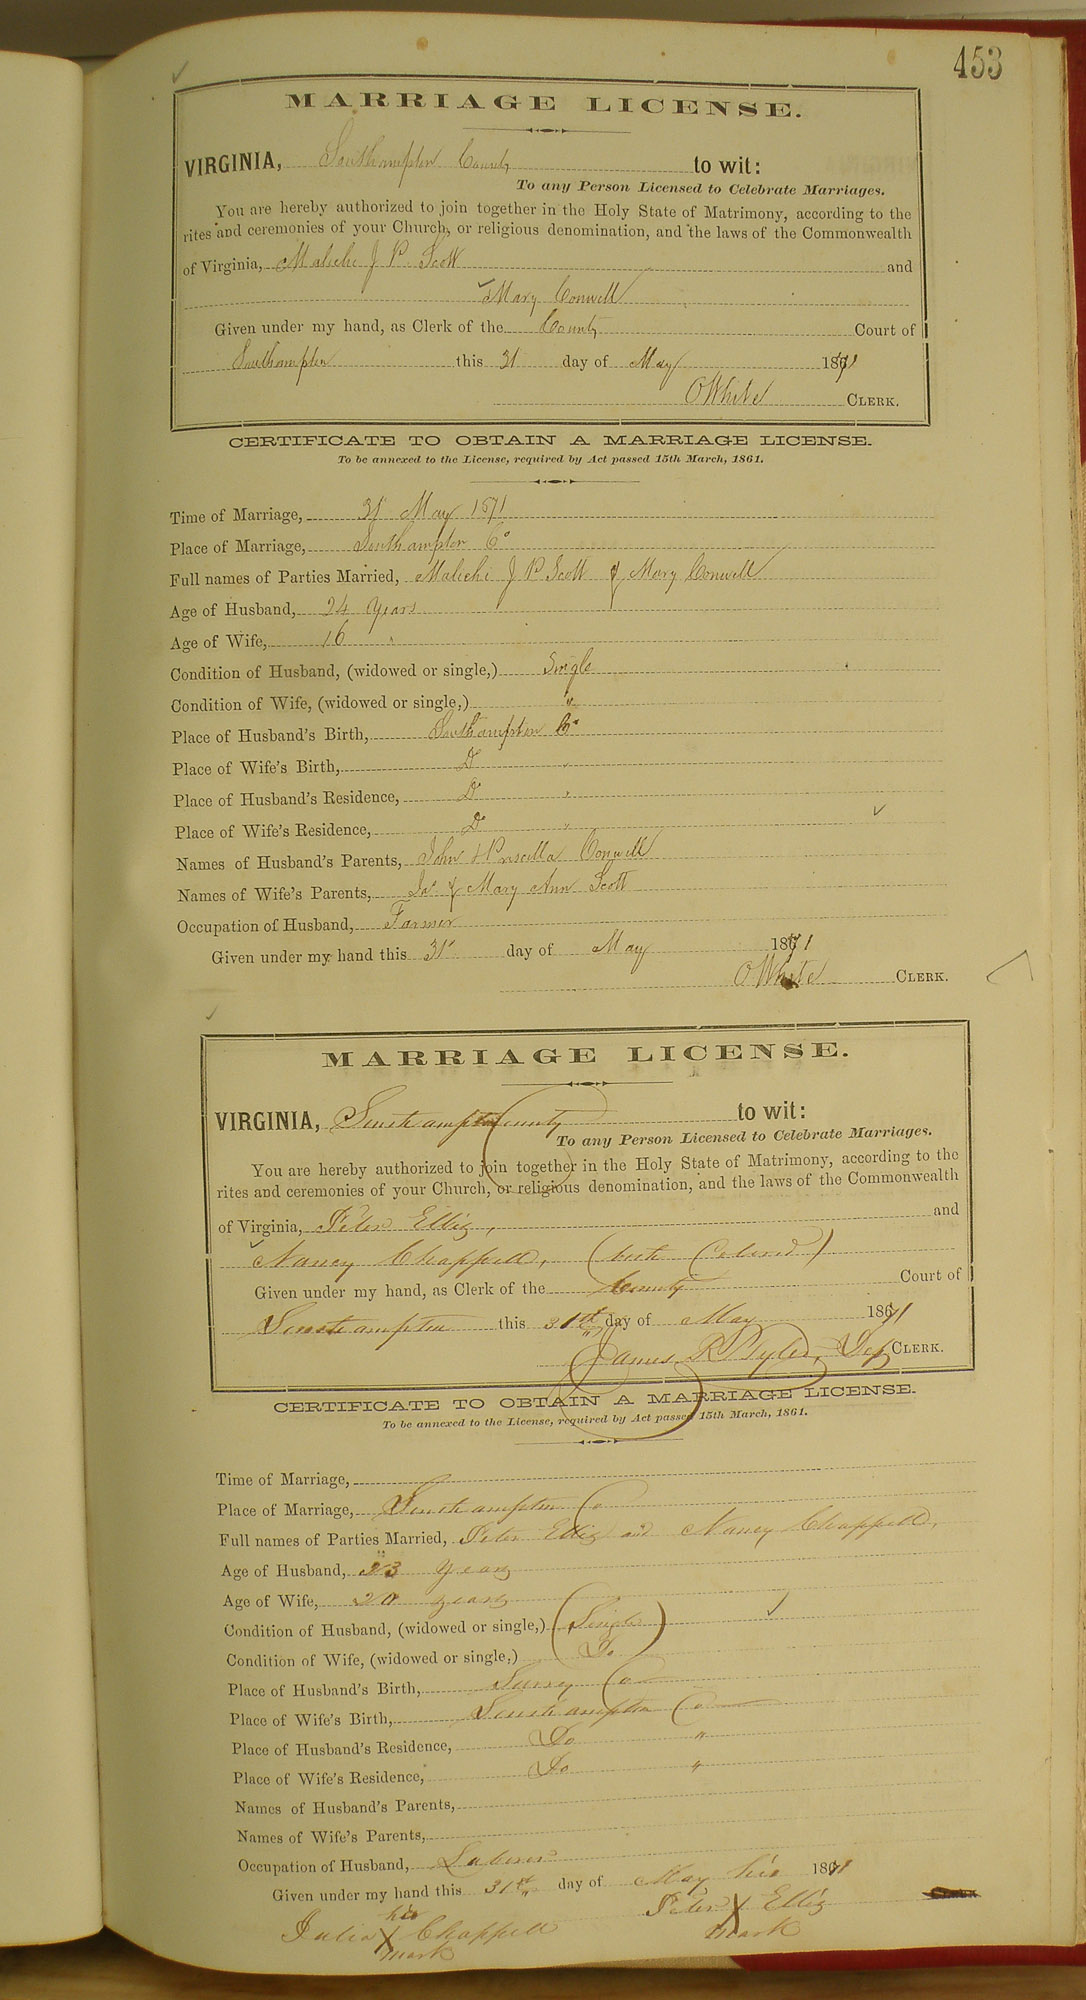 453
MARRIAGE LICENSE.
VIRGINIA, Southampton County to wit:
To any Person Licensed to Celebrate Marriages.
You are hereby authorized to join together in the Holy State of Matrimony, according to the
rites and ceremonies of your Church, or religious denomination, and the laws of the Commonwealth
of Virginia, Malichi J P. Scott and
Mary Conwell
Given under my hand, as Clerk of the County Court of
Southampton this 31 day of May 1871
O White CLERK.
CERTIFICATE TO OBTAIN A MARRIAGE LICENSE.
To be annexed to the License, required by Act passed 15th March, 1861.
Time of Marriage, 31 May 1871
Place of Marriage, Southampton Co
Full names of Parties Married, Malichi J P Scott & Mary Conwell
Age of Husband, 24 Years
Age of Wife, 16 "
Condition of Husband, (widowed or single,) Single
Condition of Wife, (widowed or single,) "
Place of Husband's Birth, Southampton Co
Place of Wife's Birth, Do "
Place of Husband's Residence, Do "
Place of Wife's Residence, Do "
Names of Husband's Parents, John & Priscilla Conwell
Names of Wife's Parents, Jas & Mary Ann Scott
Occupation of Husband, Farmer
Given under my hand this 31 day of May 1871
O White CLERK.
MARRIAGE LICENSE.
VIRGINIA, Southampton County to wit:
To any Person Licensed to Celebrate Marriages.
You are hereby authorized to join together in the Holy State of Matrimony, according to the
rites and ceremonies of your Church, or religious denomination, and the laws of the Commonwealth
of Virginia, Peter Ellis, and
Nancy Chappell, (both Colored)
Given under my hand, as Clerk of the County Court of
Southampton this 31st day of May 1871
James R Tyler, Dep CLERK.
CERTIFICATE TO OBTAIN A MARRIAGE LICENSE.
To be annexed to the License, required by Act passed 15th March, 1861.
Time of Marriage,
Place of Marriage, Southampton Co
Full names of Parties Married, Peter Ellis and Nancy Chappell,
Age of Husband, 23 Years
Age of Wife, 20 years
Condition of Husband, (widowed or single,) (Single)
Condition of Wife, (widowed or single,) Do
Place of Husband's Birth, Surry Co
Place of Wife's Birth, Southampton Co
Place of Husband's Residence, Do "
Place of Wife's Residence, Do "
Names of Husband's Parents,
Names of Wife's Parents,
Occupation of Husband, Laborer
Given under my hand this 31st day of May 1871
his
Peter X Ellis
mark
her
Julia X Chappell
mark